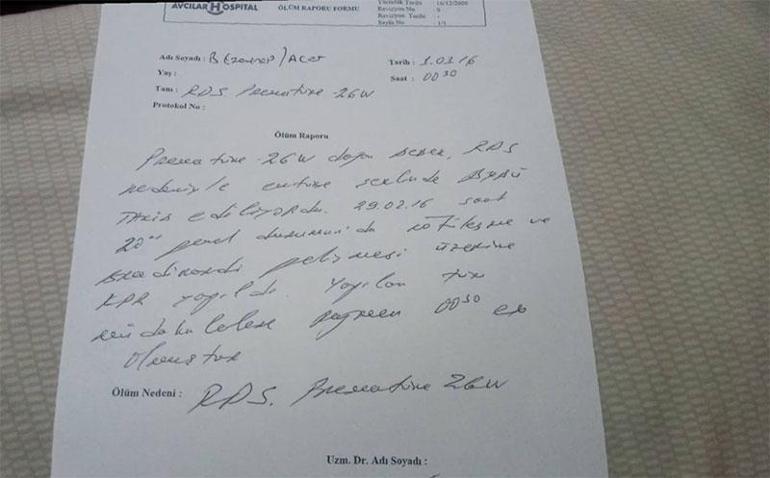 AVCILAR HOSPITAL
ÖLÜM RAPORU FORMU
Yürürlük Tarihi 16/12/2009
Revizyon No 0
Revizyon Tarihi -
Sayfa No 1/1
Adı Soyadı : B (Zeynep) Acet
Tarih : 1.03.16
Yaş :
Saat : 00 30
Tanı : RDS. Prematüre 26W
Protokol No :
Ölüm Raporu
Prematüre 26W doğan bebek, RDS
nedeniyle entübe şekilde
takip ediliyordu. 29.02.16 saat
20 genel durumunda kötüleşme ve
bradikardi gelişmesi üzerine
KPR yapıldı yapılan tüm
müdahalelere rağmen 00 30 ex
olmuştur
Ölüm Nedeni : RDS. Prematüre 26W
Uzm. Dr. Adı Soyadı :